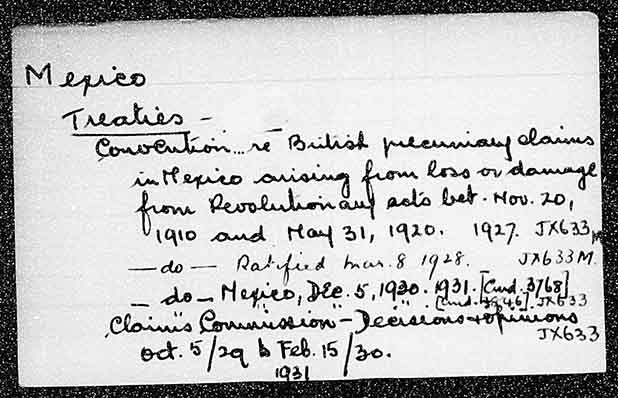 Mexico
Treaties -
Convention... re British pecuniary claims
in Mexico arising from loss or damage
from Revolutionary acts bet. Nov. 20,
1910 and May 31, 1920. 1927. JX633M
- do - Ratified Mar. 8 1928. JX633M.
- do - Mexico, Dec. 5, 1930. 1931. [Cmd. 3768]
[Cmd. ] JX633
Claims Commission - Decisions & opinions
JX633
Oct. 5/29 to Feb. 15/30.
1931